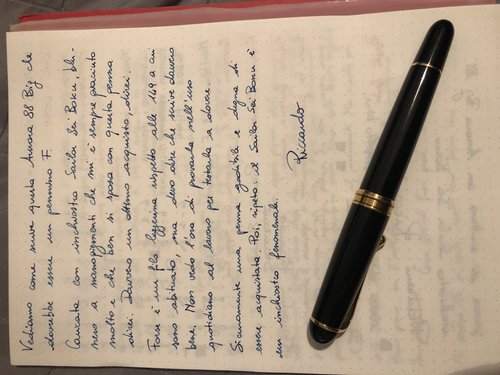 Vediamo come scrive questa Aurora 88 Big che
dovrebbe essere un pennino F.
Caricata con inchiostro Sailor Sei Boku, blu-
nero a nanopigmenti che mi è sempre piaciuto
molto e che ben si sposa con questa penna
direi. Davvero un ottimo acquisto, direi.
Forse è un filo leggerina rispetto alle 149 a cui
sono abituato, ma devo dire che scrive davvero
bene. Non vedo l'ora di provarla nell'uso
quotidiano al lavoro per testarla a dovere.
Sicuramente una penna godibile e degna di
essere acquistata. Poi, ripeto: il Sailor Sei Boku è
un inchiostro fenomenale.
Riccardo